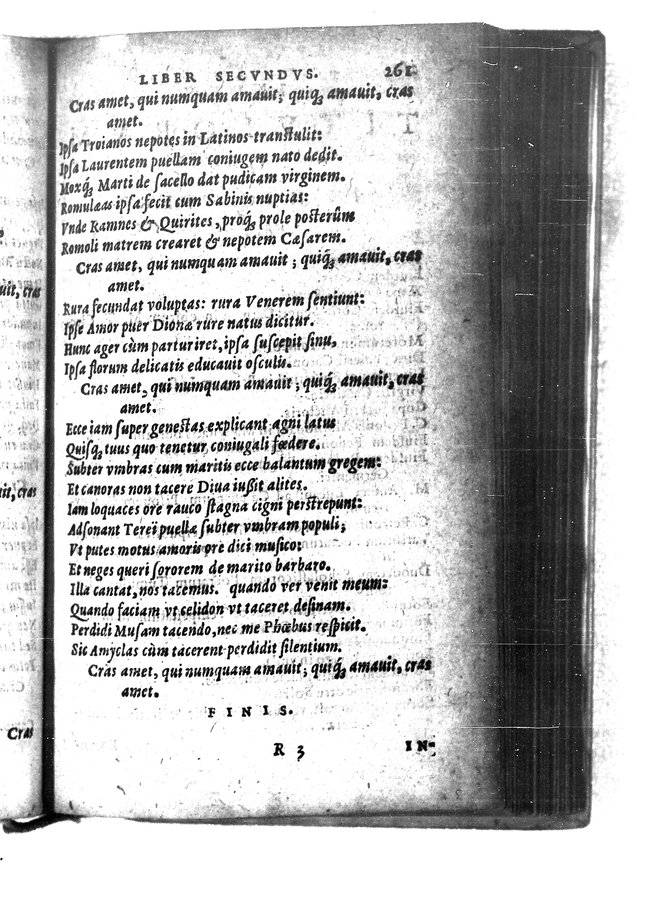 LIBER SECVNDVS. 261
Cras amet, qui numquam amauit; quiq́ꝫ amauit, cras
amet.
Ipsa Troianos nepotes in Latinos transtulit:
Ipsa Laurentem puellam coniugem nato dedit.
Moxq́ꝫ Marti de sacello dat pudicam virginem.
Romuleas ipsa fecit cum Sabinis nuptias:
Vnde Ramnes & Quirites, proq́ꝫ prole posterûm
Romoli matrem crearet & nepotem Cæsarem.
Cras amet, qui numquam amauit; quiq́ꝫ amauit, cras
amet.
Rura fecundat voluptas: rura Venerem sentiunt:
Ipse Amor puer Dionæ rure natus dicitur.
Hunc ager cùm parturiret, ipsa suscepit sinu,
Ipsa florum delicatis educauit osculis.
Cras amet, qui numquam amauit; quiq́ꝫ amauit, cras
amet.
Ecce iam super genestas explicant agni latus
Quisq́ꝫ tuus quo tenetur coniugali fœdere.
Subter vmbras cum maritis ecce balantum gregem:
Et canoras non tacere Diua iussit alites.
Iam loquaces ore rauco stagna cigni perstrepunt:
Adsonant Tereï puellæ subter vmbram populi;
Vt putes motus amoris ore dici musico:
Et neges queri sororem de marito barbaro.
Illa cantat, nos tacemus. quando ver venit meum:
Quando faciam vt celidon vt taceret desinam.
Perdidi Musam tacendo, nec me Phœbus respicit.
Sic Amyclas cùm tacerent perdidit silentium.
Cras amet, qui numquam amauit; quiq́ꝫ amauit, cras
amet.
FINIS.
R 3 IN-
uit, cras
uit, cras
Cras